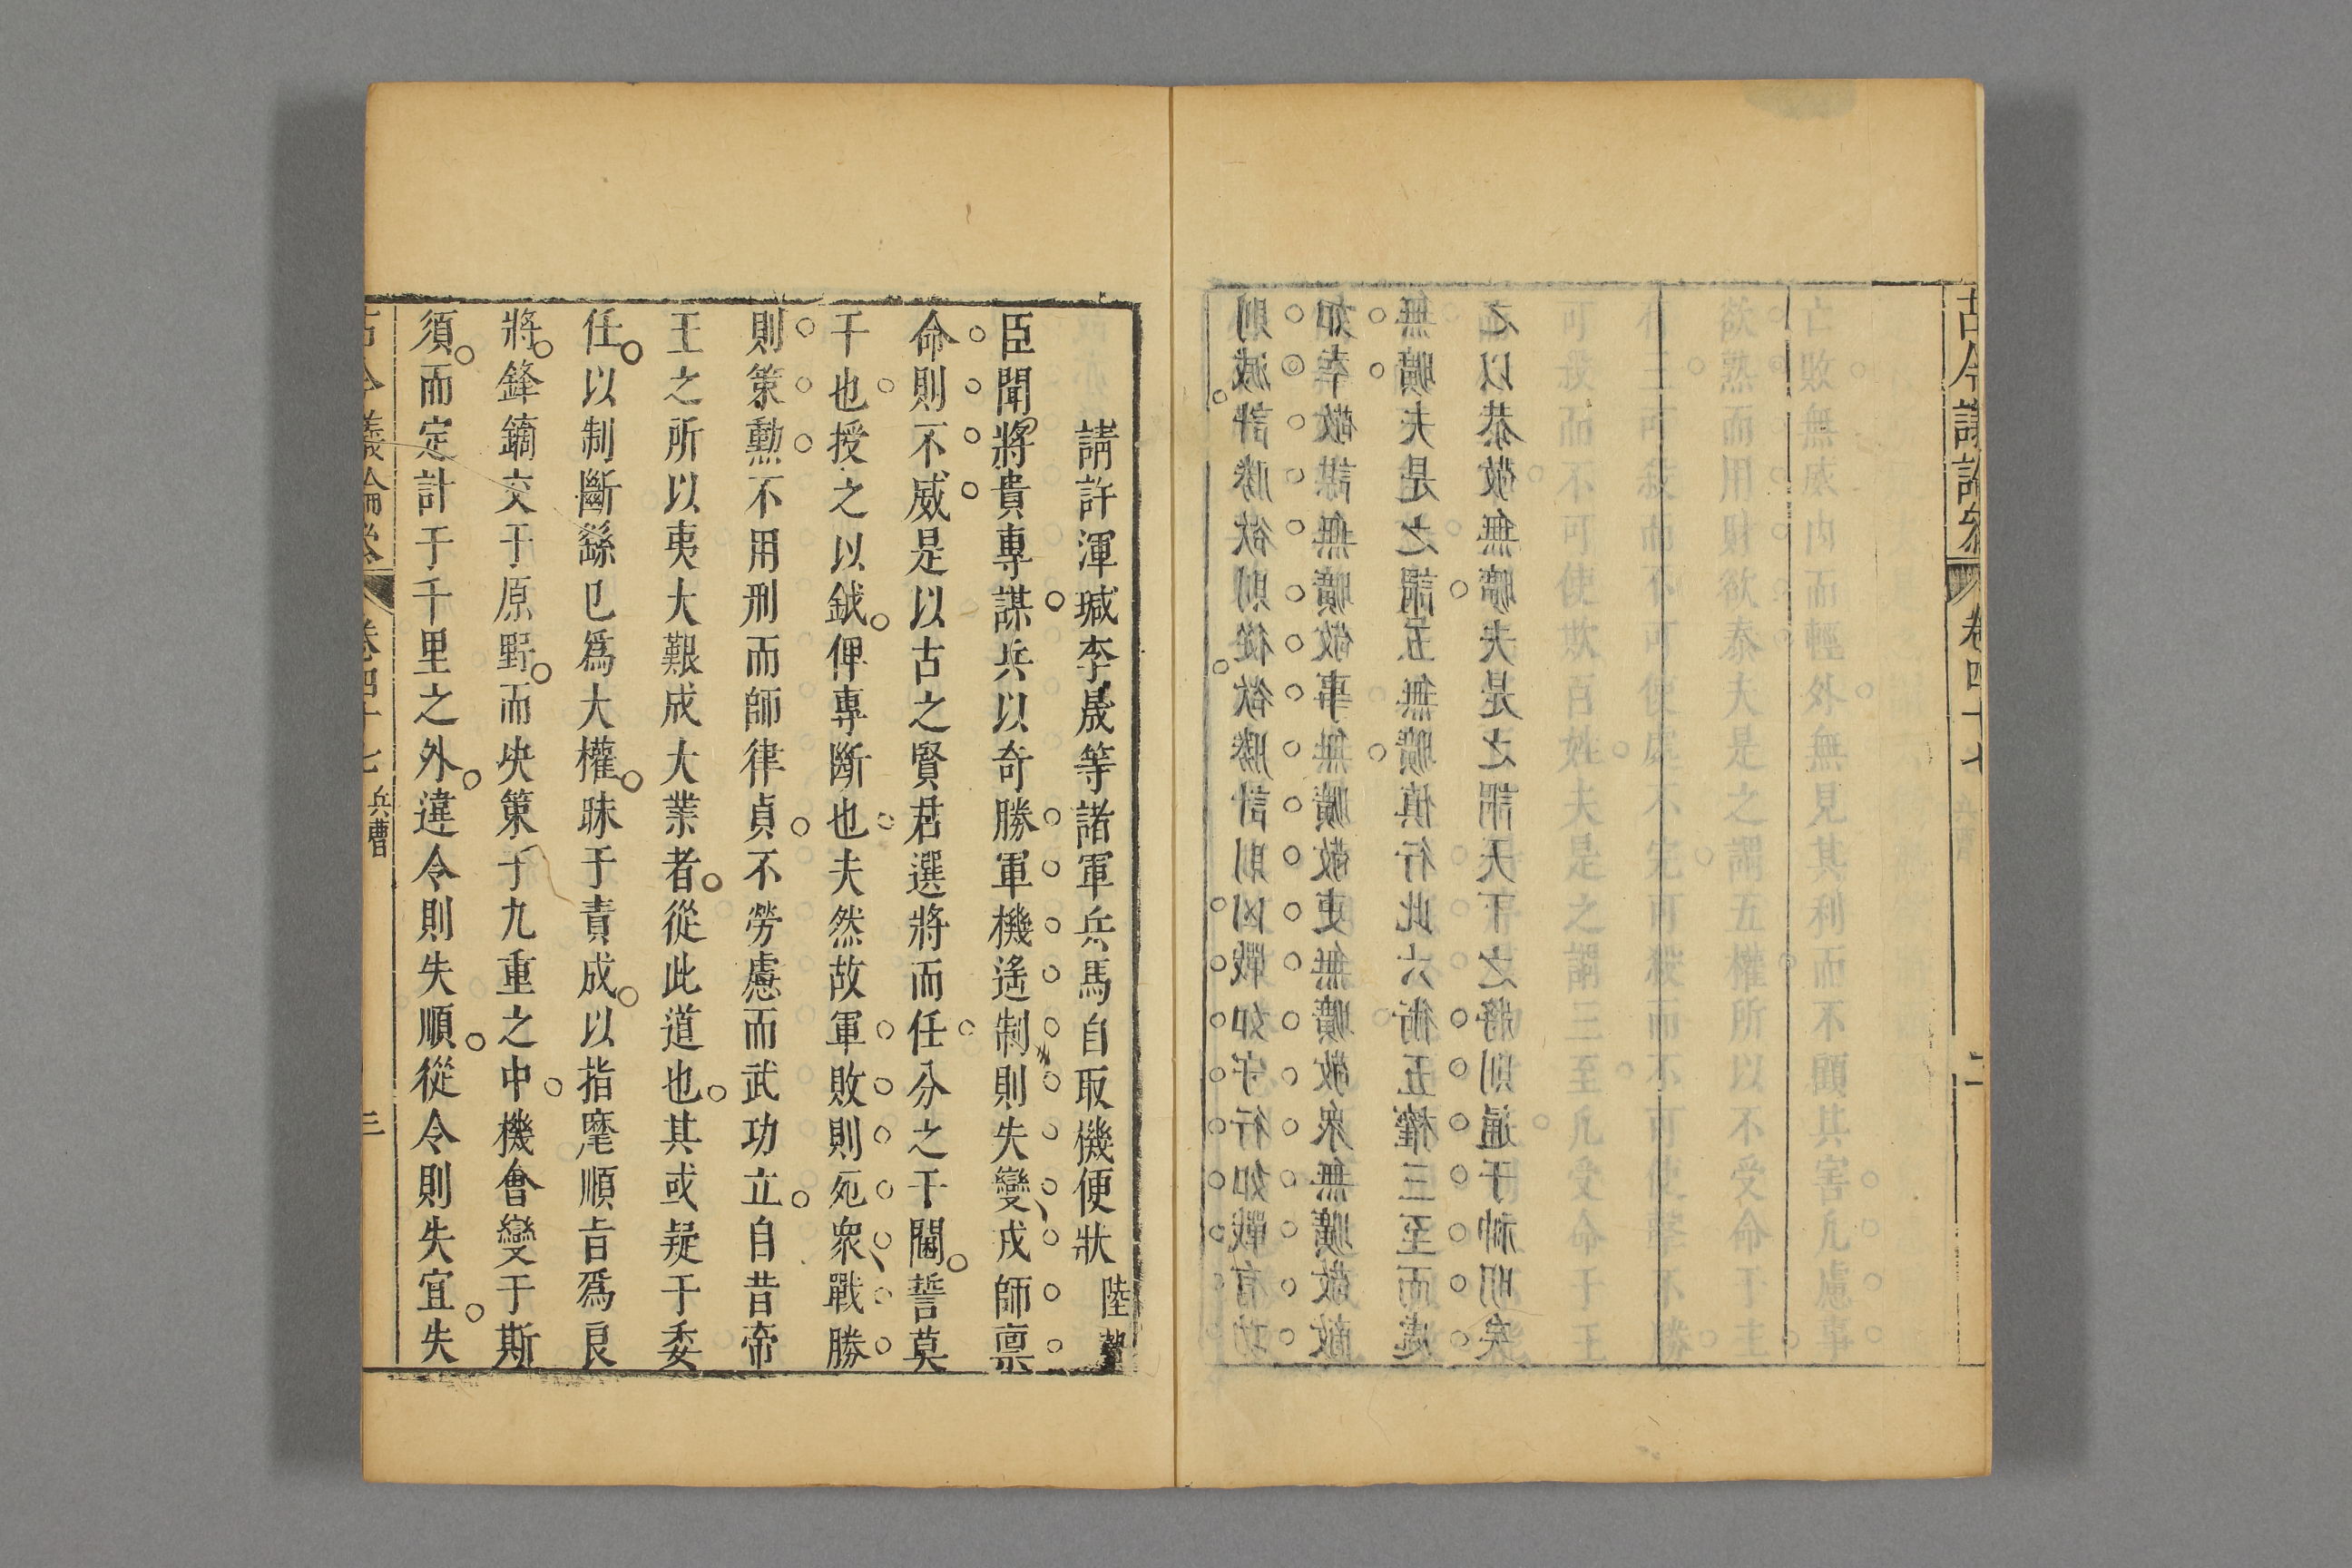 古今議論參 卷四十七 兵曹 二
亡敗無威內而輕外無見其利而不顧其害凡慮事
欲熟而用財欲泰夫是之謂五權所以不受命于主
三可殺而不可使處不完可殺而不可使擊不勝
可殺而不可使欺百姓夫是之謂三至凡受命于主
則滅計勝欲則從欲勝計則凶戰如守行如戰有功
如幸敬謀無曠敬事無曠敬吏無曠敬衆無曠敬敵
無曠夫是之謂五無曠慎行此六術五權三至而處
之以恭敬無曠夫是之謂天下之將則通于神明矣
請許渾瑊李晟等諸軍兵馬自取機便狀 陸贄
臣聞將貴專謀兵以奇勝軍機遙制則失變戎師禀
命則不威是以古之賢君選將而任分之于閫誓莫
干也授之以鉞俾專斷也夫然故軍敗則死衆戰勝
則策勲不用刑而師律貞不勞慮而武功立自昔帝
王之所以夷大艱成大業者從此道也其或疑于委
任以制斷繇己爲大權昧于責成以指麾順旨爲良
將鋒鏑交于原野而央策于九重之中機會變于斯
須而定計于千里之外違令則失順從令則失宜失
古今議論參 卷四十七 兵曹 三